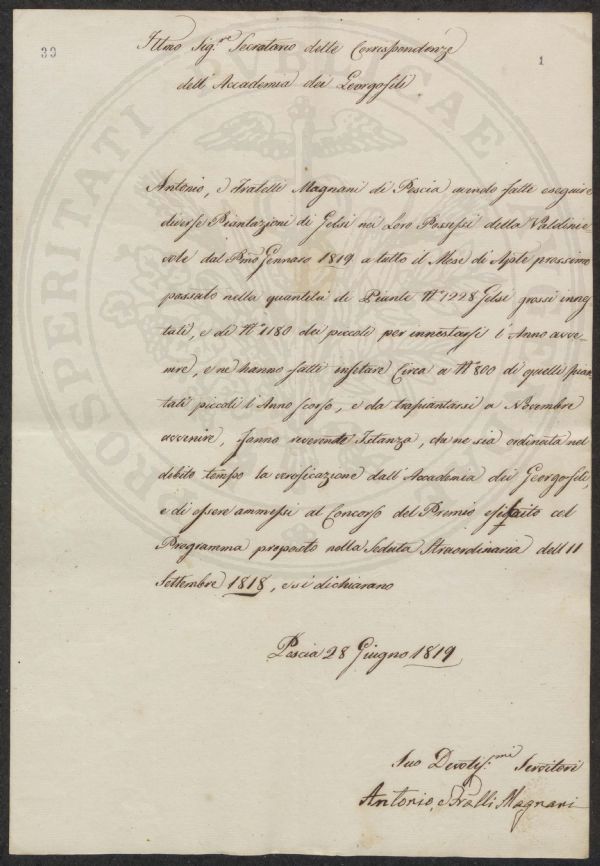 33
1
Illmo Sig.re Secratario delle Corrispondenze
dell'Accademia dei Georgofili
Antonio, e Fratelli Magnani di Pescia avendo fatte eseguire
diverse Piantazioni di Gelsi nei Loro Possessi della Valdinie-
vole dal Pmo Gennaro 1819 a tutto il Mese di Aple prossimo
passato nella quantità di Piante No 7228 Gelsi grossi innes
tati, e di No 1180 dei piccoli per innestarsi l'Anno avve-
nire, e ne hanno fatti insetare Circa a No 800 di quelli pian
tati piccoli l'Anno scorso, e da trapiantarsi a Novembre
avvenire, fanno reverende Istanza, che ne sia ordinata nel
debito tempo la verificazione dall'Accademia dei Georgofili,
e di essere ammessi al Concorso del Premio col
Programma proposto nella Seduta Straordinaria dell'11
Settembre 1818, e si dichiarano
Pescia 28 Giugno 1819
Suo Devotis.mi Servitori
Antonio, e Fralli Magnani
PROSPERITATI PUBLICAE